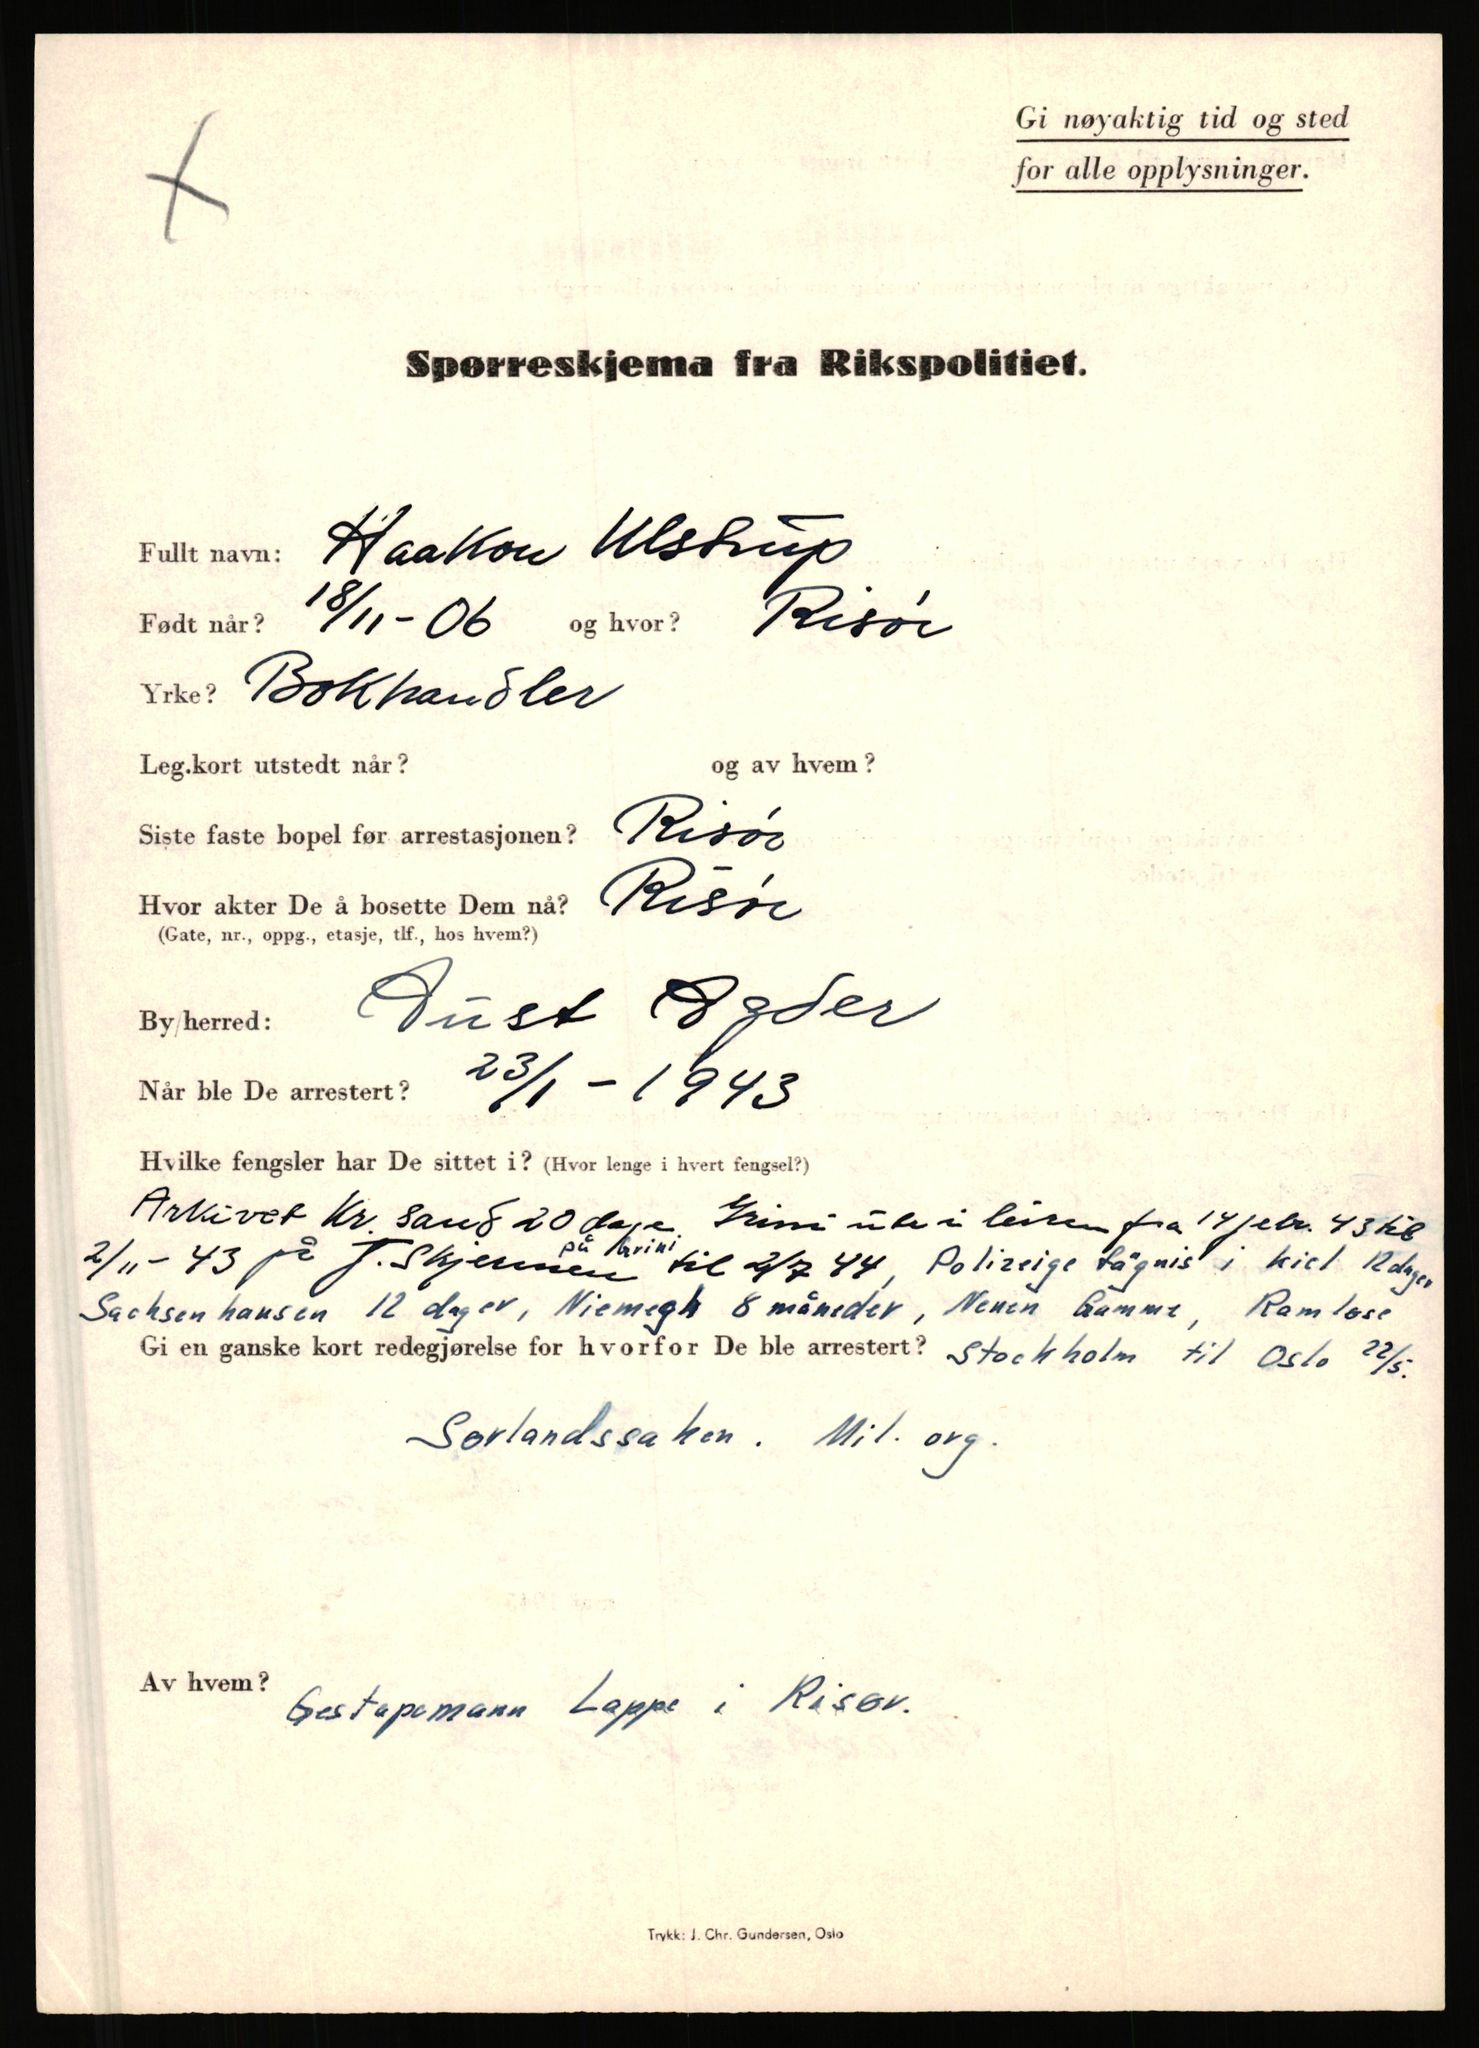 Gi nøyaktig tid og sted
for alle opplysninger.
Spørreskjema fra Rikspolitiet.
Fullt navn: Haakon Ulstrup
Født når? 18/11-06 og hvor? Risør
Yrke? Bokhandler
Leg.kort utstedt når? og av hvem?
Siste faste bopel før arrestasjonen? Risør
Hvor akter De å bosette Dem nå? Risør
(Gate, nr., oppg., etasje, tlf., hos hvem?)
By/herred: Aust Agder
Når ble De arrestert? 23/1-1943
Hvilke fengsler har De sittet i? (Hvor lenge i hvert fengsel?)
Arkivet Kr. sand 20 dage Grini ute i leiren fra 14 febr. 43 til
2/11-43 på f. Skjermen på Grini til 2/7 44, Polizeige fägnis i kiel 12 dager
Sachsenhausen 12 dager, Niemegk 8 måneder, Neuen Gamme, Ramløse
Gi en ganske kort redegjørelse for hvorfor De ble arrestert? Stockholm til Oslo 22/5.
Sørlandssaken. Mil. org.
Av hvem? Gestapomann Lappe i Risør.
Trykk: J. Chr. Gundersen, Oslo